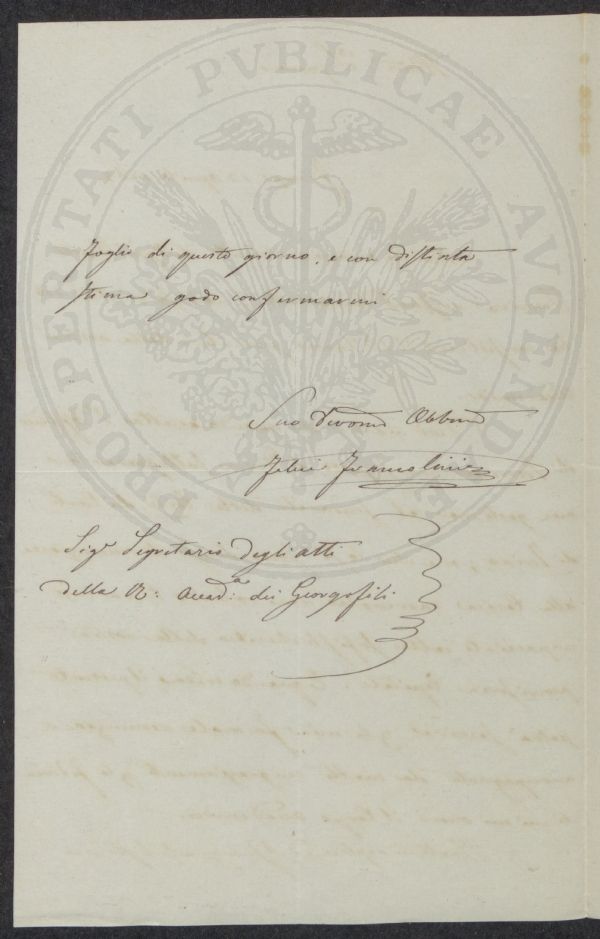 PROSPERITATI PVBLICAE AVGENDAE
foglio di questo giorno, e con distinta
stima godo confermarmi
Suo Devmo Obbmo
Felice Francolini
Sigr Segretario degli atti
della R: Accad:a dei Georgofili